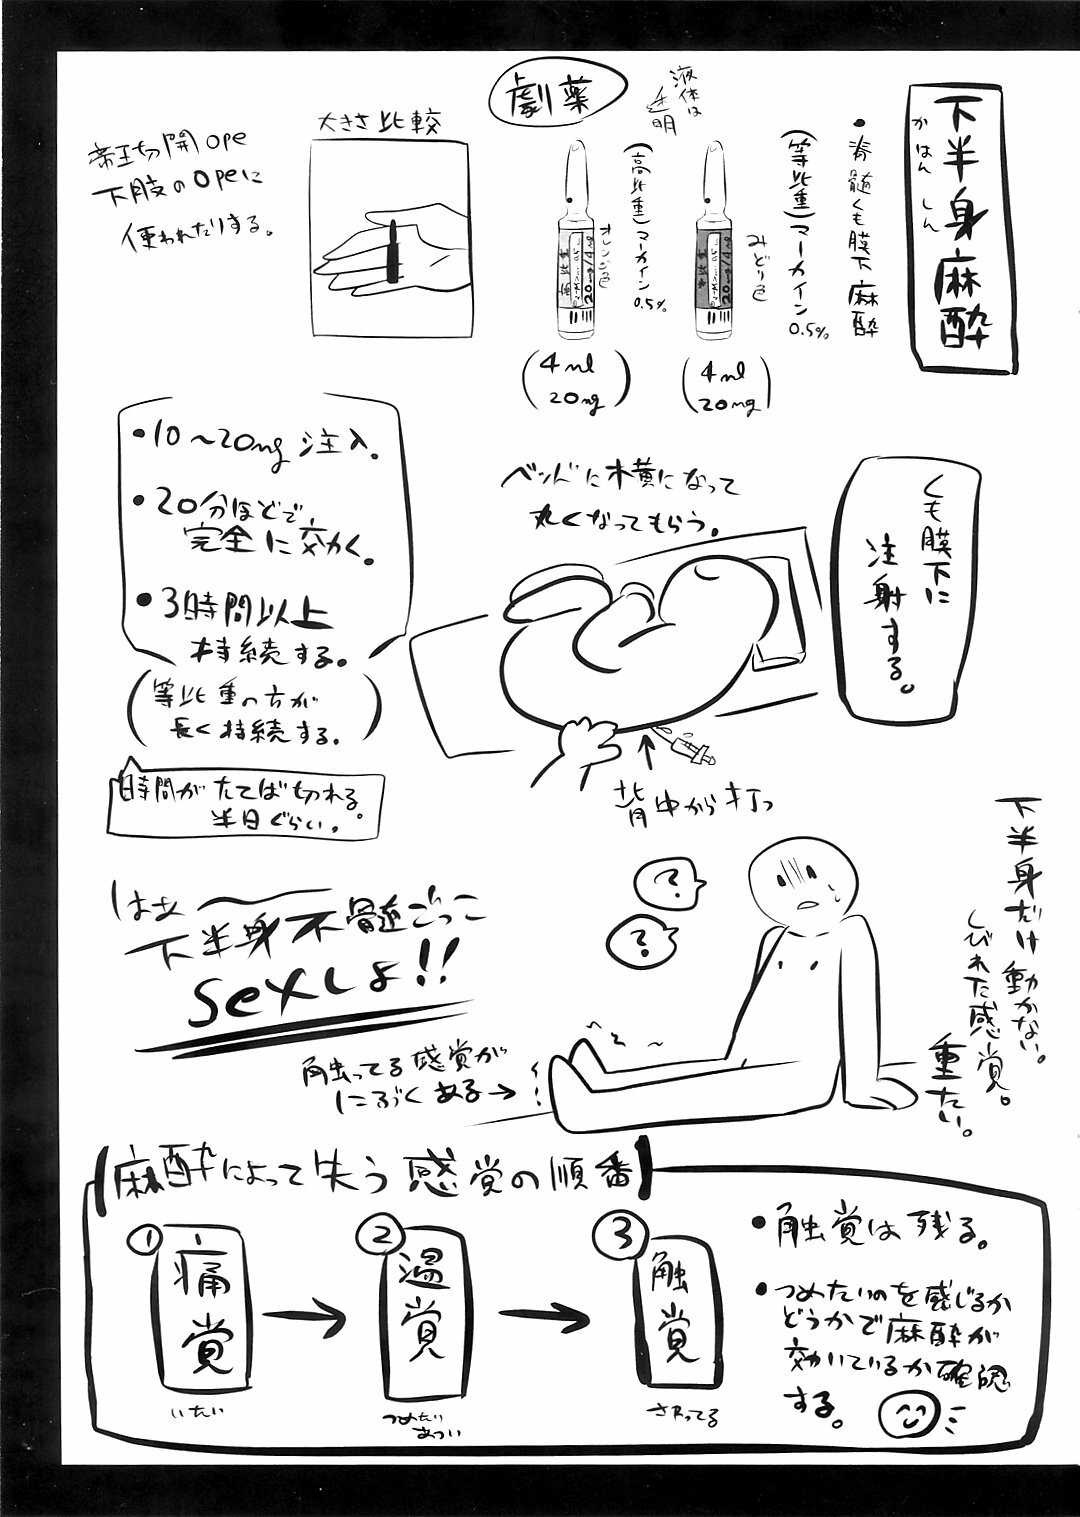 下半身麻酔
かはんしん
・脊髄くも膜下麻酔
(等比重)マーカイン0.5%
みどり色
液体は
透明
(高比重)マーカイン0.5%
オレンジ色
劇薬
4ml
20mg
4ml
20mg
大きさ比較
帝王切開ope
下肢のopeに
使われたりする。
くも膜下に
注射する。
ベッドに横になって
丸くなってもらう。
背中から打つ
・10〜20mg注入。
・20分ほどで
完全に効く。
・3時間以上
持続する。
(等比重の方が
長く持続する。)
時間がたてば切れる。
半日ぐらい。
はぁ〜
下半身不髄ごっこ
sexしよ!!
?
?
下半身だけ動かない。
しびれた感覚。
重たい。
触ってる感覚が
にぶくある→
麻酔によって失う感覚の順番
①痛覚
いたい
→
②温覚
つめたい
あつい
→
③触覚
さわってる
・触覚は残る。
・つめたいのを感じるか
どうかで麻酔が
効いているか確認
する。